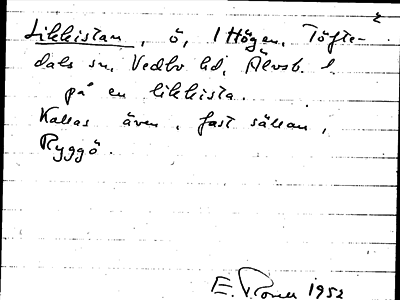 Likkistan, ö, i Högen, Töfte-
dals sn, Vedbo hd, Älvsb. l.
på en likkista.
Kallas även, fast sällan,
Ryggö.
E. 1952